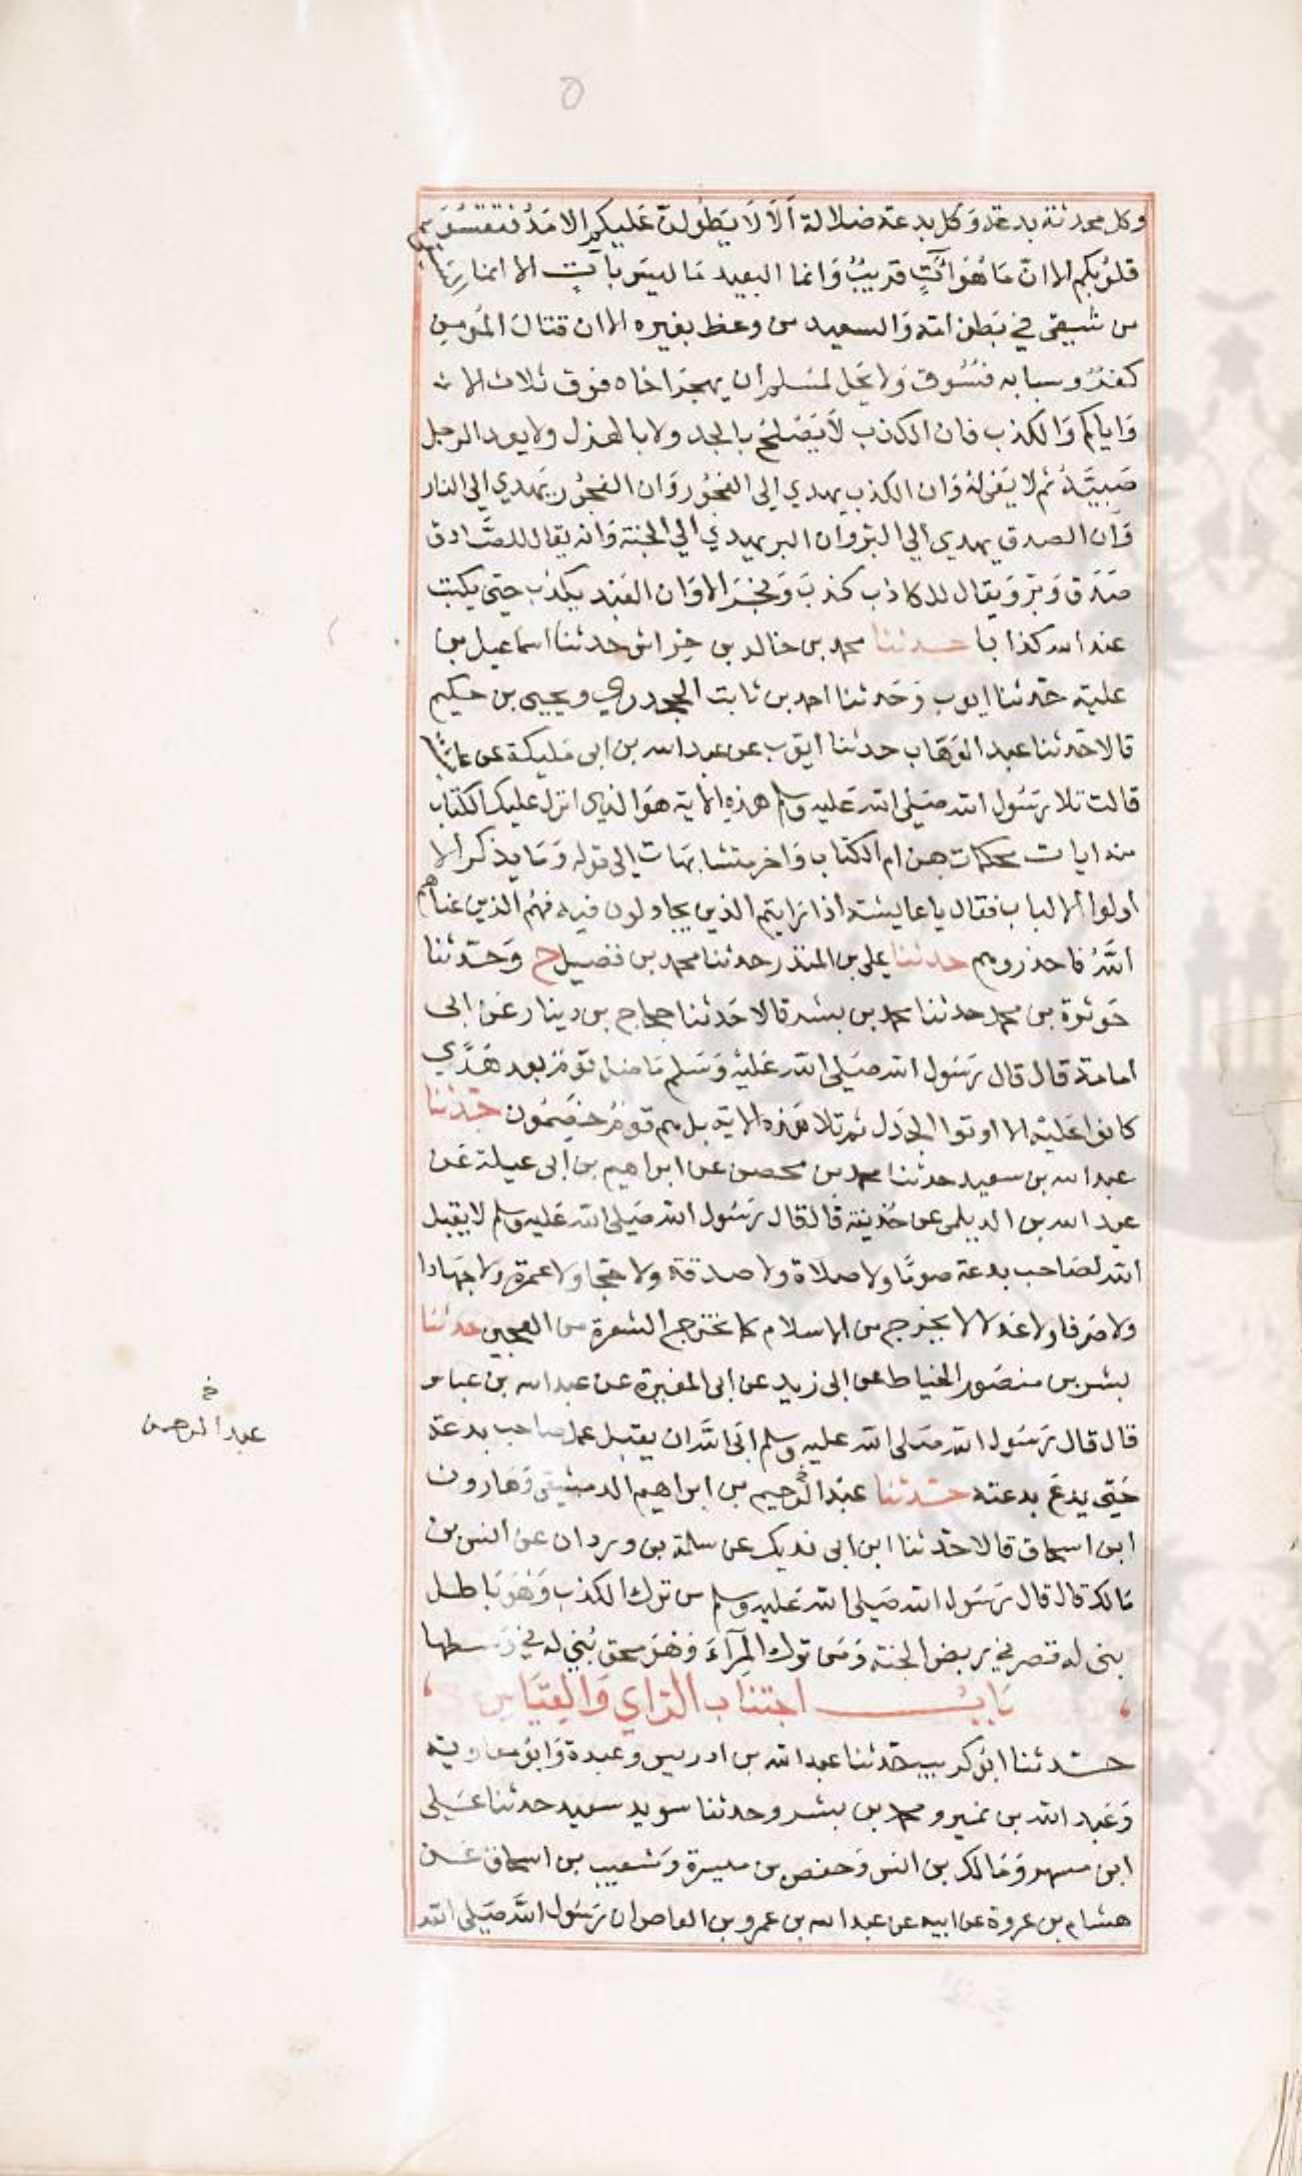 ٥
وكل محدثة بدعة وَكل بدعة ضلالة اَلَا لَا يَطُولنّ عَليكم الامَدُ فتقسُوَ
قلوُبكم الا انّ مَا هُوَ آتٍ قريبٌ وَانما البعيد مَا ليسَ بآتٍ الا انما
من شقي في بَطن امّه وَالسعيد من وعظ بغيره الا ان قتال المُومن
كفرٌ وسبابه فسُوق وَلا يحل لمسَلم ان يهجرَ اخاه فوق ثلاث الا
وَاياكم وَالكذب فان الكذب لَا يَصْلحُ بالجد ولا بالهزل ولا يعد الرجل
صَبيَّهُ ثم لا يَفي لهُ وَان الكذب يهدي الى الفجُور وَان الفجُور يَهدي الى النار
وَان الصدق يهدي الي البرّ وان البر يهدي الي الجنة وَانه يقال للصَّادق
صَدَق وَبرّ وَيقال للكاذب كذبَ وَفجَرَ الا وَان العَبد يكذب حتى يكتب
عند الله كذابا حدثنا محمد بن خالد بن خِراش حدثنا اسماعيل بن
علية حَدثنا ايوب وَحَدثنا احمد بن ثابت الجحدري ويحيى بن حكيم
قالا حَدثنا عبد الوَهّاب حدثنا ايوّب عن عبد الله بن ابى مَليكة عن عائشة
قالت تلا رَسُول الله صَلى الله عَليه وسلم هذه الاية هوَ الذى انزل عليك الكتاب
منه ايات محكمات هن ام الكتاب وَاخر متشابهات الى قوله وَمَا يذكر الا
اولوا الالباب فقال يا عايشة اذا رَايتم الذين يجادلون فيه فهُم الذين عناهم
اللهُ فاحذروهم حدثنا علي بن المنذر حدثنا محمد بن فضيل ح وَحَدّثنا
حَوثرة بن محمد حدثنا محمد بن بشر قالا حَدثنا حجاج بن دينار عَن ابى
امامة قال قال رَسُول الله صَلى الله عَليْه وَسَلم مَا ضل قوْمٌ بعد هُدًي
كانوا عَليْه الا اوتوا الجدَل ثم تلا هَذه الاية بل هم قومٌ خصِمُون حَدثنا
عبد الله بن سعيد حدثنا محمد بن محصن عن ابراهيم بن ابى عبلة عَن
عبد الله بن الديلمى عن حُذيفة قال قال رَسُول الله صَلى الله عَليه وسلم لا يقبل
الله لصَاحب بدعة صومًا ولا صلاة ولا صدقة ولا حجًا ولا عمرة ولا جهَادا
ولا صَرفا ولا عَدلا لا يخرج من الاسلام كما تخرج الشعرة من العجين حدثنا
بشر بن منصَور الخياط عن ابى زيد عن ابى المغيرة عن عبد الله بن عباس
قال قال رَسُول الله صَلى الله عليه وسلم ابَى الله ان يقبل عمل صاحب بدعة
حَتى يدَعَ بدعته حَدثنا عبْد الرحيم بن ابراهيم الدمشقي وَهارون
خ
عبد الرحمن
ابن اسحاق قالا حَدثنا ابن ابى فديك عن سلمة بن وردان عن انس بن
مَالك قال قال رَسُول الله صَلى الله عَليه وسلم من ترك الكذب وَهوَ بَاطل
بنى له قصر في ربض الجنة وَمَن ترك المِرَآءَ وَهوَ محق بُني له في وَسطها
بَابُ اجتنَاب الرّاي وَالقيَاس
حَدثنا ابوُ كريب حَدثنا عبد الله بن ادريس وعبدة وَابوُ معاوية
وَعَبد الله بن نمير ومحمد بن بشر وحدثنا سويد سعيد حدثنا عَلي
ابن مسهر وَمَالك بن انس وَحفص بن ميسرة وَشعيب بن اسحاق عَن
هشام بن عروة عن ابيه عن عبد الله بن عمرو بن العاص ان رَسُول اللهِ صَلى الله